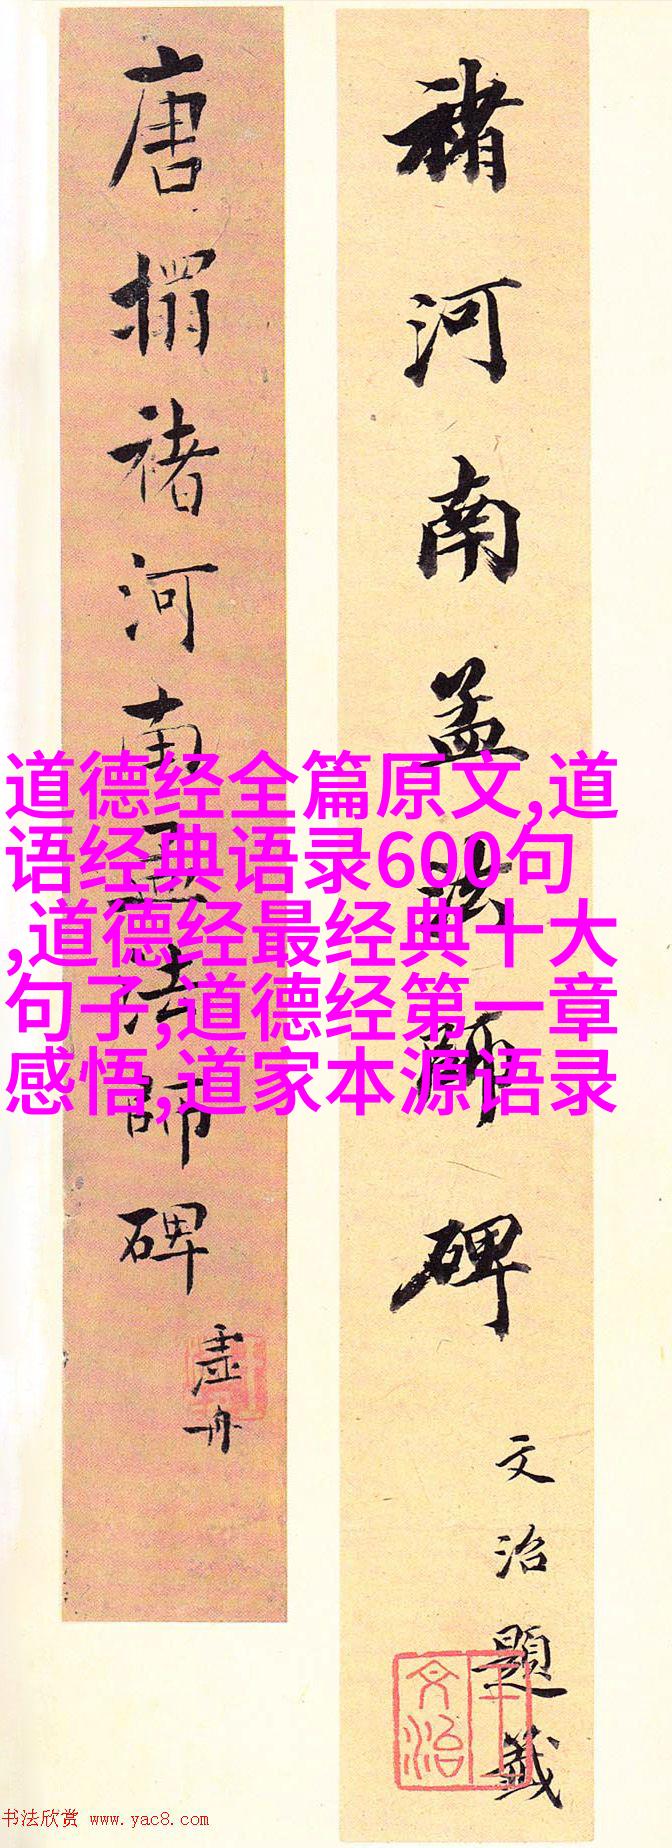 褚河南孟法師碑
文治題籤
王文治
唐搨褚河南孟法師碑
虛舟
道德经全篇原文,道
语经典语录600句
,道德经最经典十大
句子,道德经第一章
感悟,道家本源语录
书法欣赏 www.yac8.com